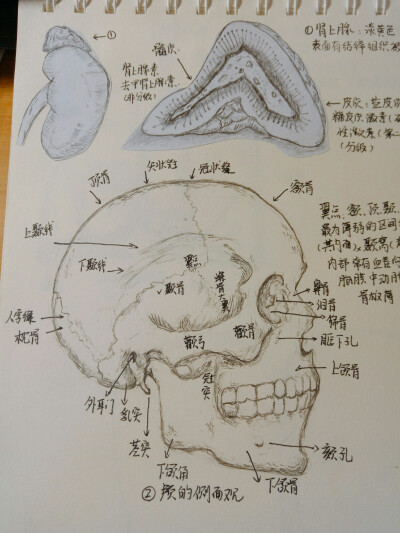 ①
髓质
肾上腺素
去甲肾上腺素
(非分级)
①肾上腺：淡黄色
表面有结缔组织被
←皮质：盐皮质
糖皮质激素(
性激素(
(分级)
矢状缝
冠状缝
顶骨
额骨
上颞线
下颞线
翼点
颞骨
蝶骨大翼
翼点：额、顶、颞、
最为薄弱的区间
(其内面)
内部常有血管
脑膜中动脉
骨故障
鼻骨
泪骨
筛骨
人字缝
枕骨
颧弓
颧骨
眶下孔
冠突
上颌骨
外耳门
乳突
茎突
下颌角
下颌骨
颏孔
②颅的侧面观